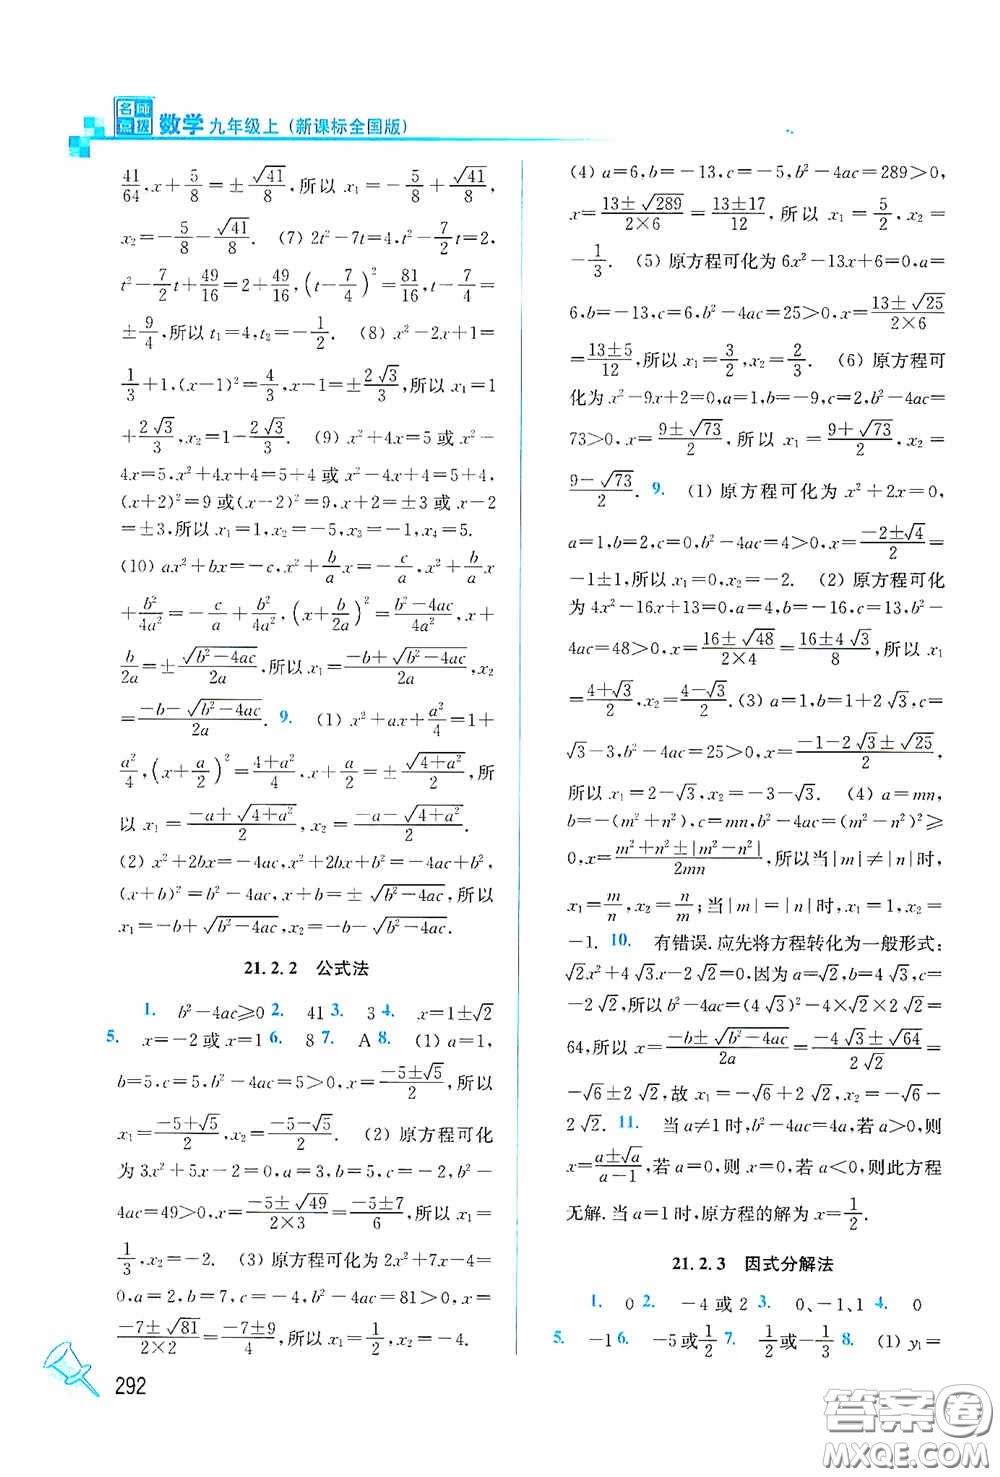 名师点拨 数学 九年级上（新课标全国版）
41/64, x+5/8=±√41/8, 所以 x₁=-5/8+√41/8,
x₂=-5/8-√41/8. (7) 2t²-7t=4, t²-7/2t=2,
t²-7/2t+49/16=2+49/16, (t-7/4)²=81/16, t-7/4=
±9/4, 所以 t₁=4, t₂=-1/2. (8) x²-2x+1=
1/3+1, (x-1)²=4/3, x-1=±2√3/3, 所以 x₁=1
+2√3/3, x₂=1-2√3/3. (9) x²+4x=5 或 x²-
4x=5, x²+4x+4=5+4 或 x²-4x+4=5+4,
(x+2)²=9 或(x-2)²=9, x+2=±3 或 x-2
=±3, 所以 x₁=1, x₂=-5, x₃=-1, x₄=5.
(10) ax²+bx=-c, x²+b/a x=-c/a, x²+b/a x
+b²/4a²=-c/a+b²/4a², (x+b/2a)²=(b²-4ac)/4a², x+
b/2a=±√(b²-4ac)/2a, 所以 x₁=(-b+√(b²-4ac))/2a, x₂
=(-b-√(b²-4ac))/2a. 9. (1) x²+ax+a²/4=1+
a²/4, (x+a/2)²=(4+a²)/4, x+a/2=±√(4+a²)/2, 所
以 x₁=(-a+√(4+a²))/2, x₂=(-a-√(4+a²))/2.
(2) x²+2bx=-4ac, x²+2bx+b²=-4ac+b²,
(x+b)²=b²-4ac, x+b=±√(b²-4ac), 所以
x₁=-b+√(b²-4ac), x₂=-b-√(b²-4ac).
21.2.2 公式法
1. b²-4ac≥0 2. 41 3. 3 4. x=1±√2
5. x=-2 或 x=1 6. 8 7. A 8. (1) a=1,
b=5, c=5, b²-4ac=5>0, x=(-5±√5)/2, 所以
x₁=(-5+√5)/2, x₂=(-5-√5)/2. (2) 原方程可化
为 3x²+5x-2=0, a=3, b=5, c=-2, b²-
4ac=49>0, x=(-5±√49)/(2×3)=(-5±7)/6, 所以 x₁=
1/3, x₂=-2. (3) 原方程可化为 2x²+7x-4=
0, a=2, b=7, c=-4, b²-4ac=81>0, x=
(-7±√81)/(2×2)=(-7±9)/4, 所以 x₁=1/2, x₂=-4.
(4) a=6, b=-13, c=-5, b²-4ac=289>0,
x=(13±√289)/(2×6)=(13±17)/12, 所以 x₁=5/2, x₂=
-1/3. (5) 原方程可化为 6x²-13x+6=0, a=
6, b=-13, c=6, b²-4ac=25>0, x=(13±√25)/(2×6)
=(13±5)/12, 所以 x₁=3/2, x₂=2/3. (6) 原方程可
化为 x²-9x+2=0, a=1, b=-9, c=2, b²-4ac=
73>0, x=(9±√73)/2, 所以 x₁=(9+√73)/2, x₂=
(9-√73)/2. 9. (1) 原方程可化为 x²+2x=0,
a=1, b=2, c=0, b²-4ac=4>0, x=(-2±√4)/2=
-1±1, 所以 x₁=0, x₂=-2. (2) 原方程可化
为 4x²-16x+13=0, a=4, b=-16, c=13, b²-
4ac=48>0, x=(16±√48)/(2×4)=(16±4√3)/8, 所以 x₁
=(4+√3)/2, x₂=(4-√3)/2. (3) a=1, b=1+2√3, c=
√3-3, b²-4ac=25>0, x=(-1-2√3±√25)/2,
所以 x₁=2-√3, x₂=-3-√3. (4) a=mn,
b=-(m²+n²), c=mn, b²-4ac=(m²-n²)²≥
0, x=(m²+n²±|m²-n²|)/2mn, 所以当|m|≠|n|时,
x₁=m/n, x₂=n/m; 当|m|=|n|时, x₁=1, x₂=
-1. 10. 有错误. 应先将方程转化为一般形式:
√2x²+4√3x-2√2=0, 因为 a=√2, b=4√3, c=
-2√2, 所以 b²-4ac=(4√3)²-4×√2×(-2√2)=
64, 所以 x=(-b±√(b²-4ac))/2a=(-4√3±√64)/2√2=
-√6±2√2, 故 x₁=-√6+2√2, x₂=-√6-
2√2. 11. 当 a≠1 时, b²-4ac=4a, 若 a>0, 则
x=(a±√a)/(a-1), 若 a=0, 则 x=0; 若 a<0, 则此方程
无解. 当 a=1 时, 原方程的解为 x=1/2.
21.2.3 因式分解法
1. 0 2. -4 或 2 3. 0、-1、1 4. 0
5. -1 6. -5 或 1/2 7. 1/2 或 -1/3 8. (1) y₁=
292
答案圈
MXQE.COM